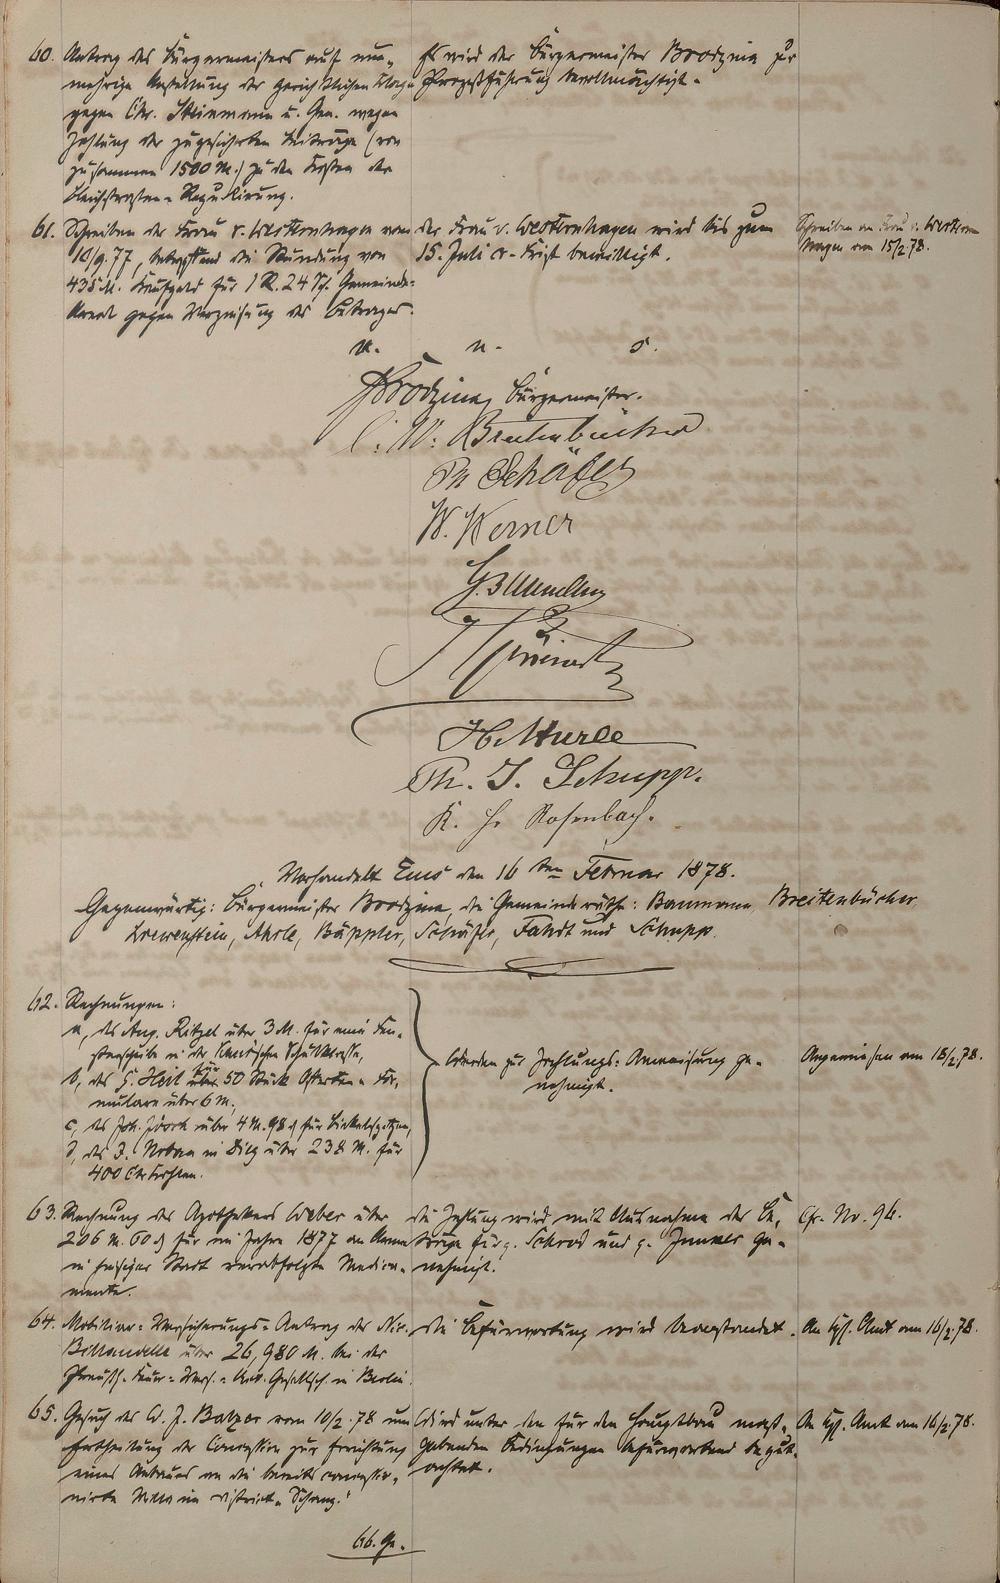 60. Antrag des Bürgermeisters auf nun-
mehrige Anstellung der gerichtlichen Klage
gegen Chr. Steinmann u. Gen. wegen
Zahlung der zugesicherten Beiträge (von
zusammen 1500 M.) zu den Kosten der
Bleichstraßen-Regulirung.
Es wird der Bürgermeister Brodzina zur
Prozeßführung bevollmächtigt.
61. Schreiben der Frau v. Westernhagen vom
10/9. 77, betreffend die Stundung von
435 M. Kaufgeld für 1 R. 24 Sch. Gemeinde-
gegen Verzinsung des Betrages.
der Frau v. Westernhagen wird bis zum
15. Juli cr. Frist bewilligt.
Schreiben an Frau v. Western
hagen am 15/2. 78.
v. u. s.
Brodzina, Bürgermeister.
C. W. Breitenbücher
Ph Schäfer
W. Werner
H. Ahrle
Th. J. Schupp.
K. Fr Rosenbach.
Verhandelt Ems den 16ten Februar 1878.
Gegenwärtig: Bürgermeister Brodzina, die Gemeinderäthe: Baumann, Breitenbücher,
Loewenstein, Ahrle, Bäppler, Schäfer, Fahdt und Schupp.
62. Rechnungen:
a, des Aug. Ritzel über 3 M. für eine Fen-
sterscheibe in der Schulklasse,
b, des H. Heil für 50 Stück For-
mulare über 6 M.,
c, des Joh. über 4 M. 98 d für
d, des J. in Diez über 238 M. für
400 Ctr Kohlen.
Werden zur Zahlungs-Anweisung ge-
nehmigt.
Angewiesen am 18/2. 78.
63. Rechnung des Apothekers Weber über
206 M. 60 d für im Jahre 1877 an Arme
in hiesiger Stadt verabfolgte Medica-
mente.
die Zahlung wird mit Ausnahme der Be-
träge für g. Schrod und g. Junker ge-
nehmigt.
Cfr. No. 94.
64. Mobiliar-Versicherungs-Antrag der
über 26,980 M. bei der
Preuß. Feuer-Vers.-Act. Gesellsch. in Berlin.
die Befürwortung wird beanstandet.
An Kgl. Amt am 16/2. 78.
65. Gesuch des W. J. Balzer vom 10/2. 78 um
Ertheilung der Concession zur Errichtung
eines Anbaues an die bereits concessio-
nirte Villa im District "Schanz."
Wird unter den für den Hauptbau maß-
gebenden Bedingungen befürwortend begut-
achtet.
An Kgl. Amt am 16/2. 78.
66. Ge.